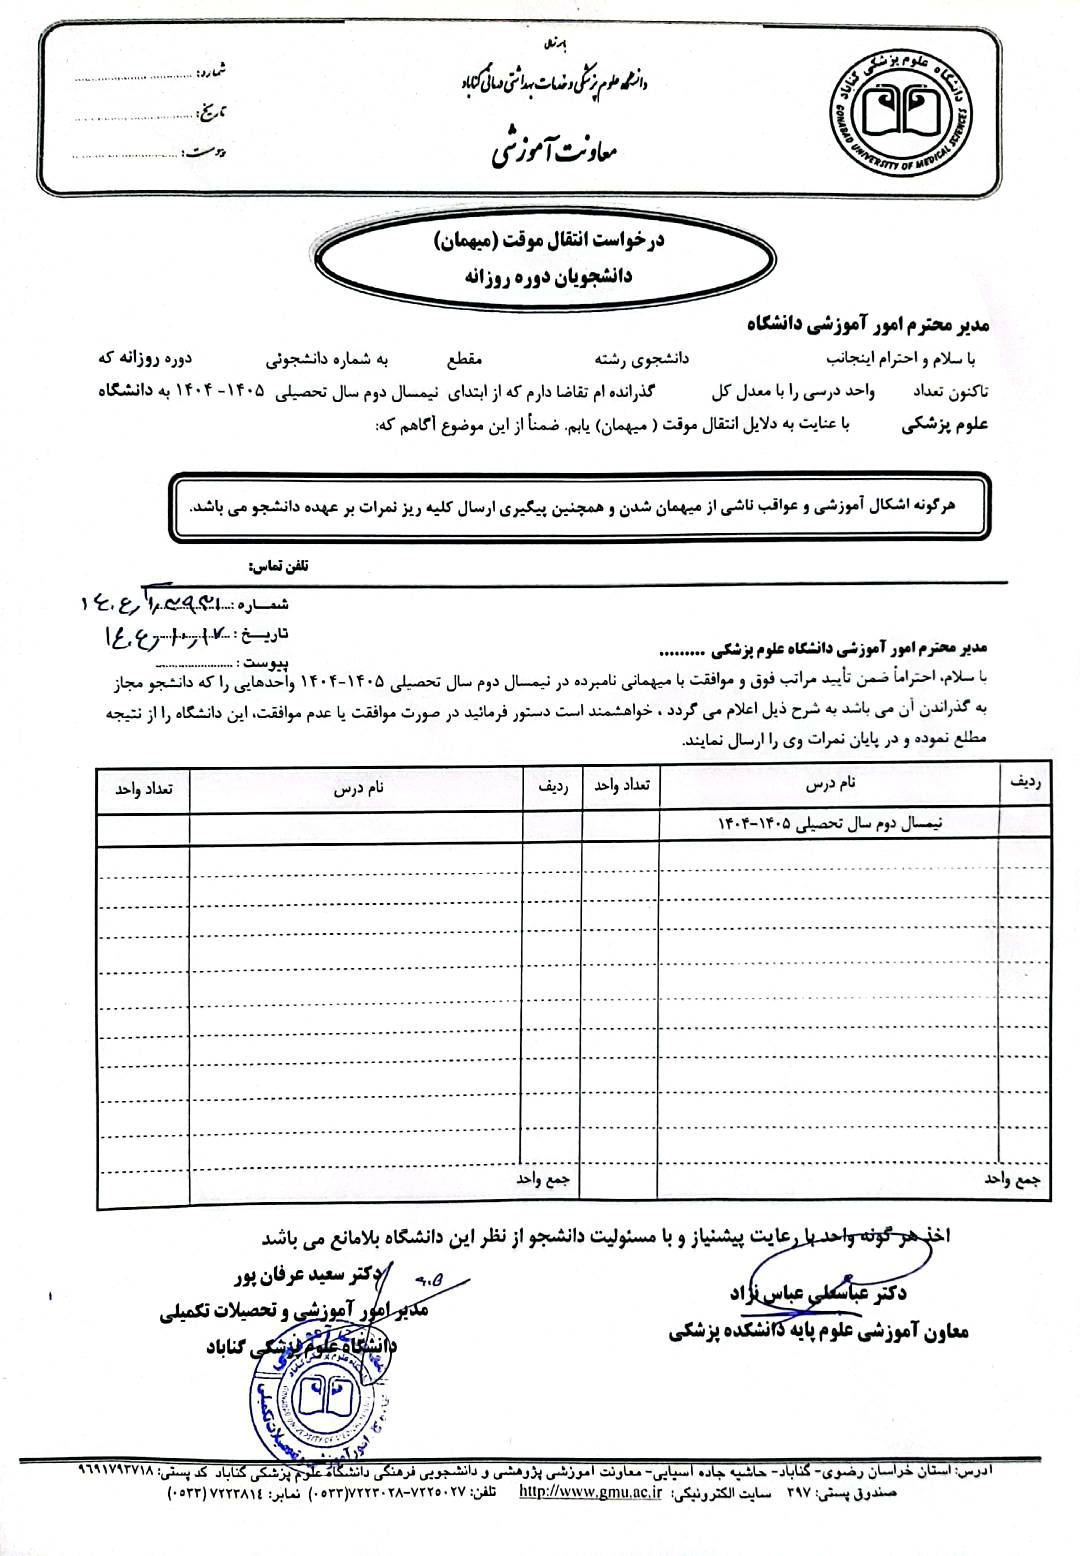 باسمه تعالی
دانشگاه علوم پزشکی و خدمات بهداشتی درمانی گناباد
معاونت آموزشی
شماره: ........................
تاریخ: ........................
پیوست: ........................
دانشگاه علوم پزشکی گناباد
GONABAD UNIVERSITY OF MEDICAL SCIENCES
درخواست انتقال موقت (میهمان)
دانشجویان دوره روزانه
مدیر محترم امور آموزشی دانشگاه
با سلام و احترام اینجانب دانشجوی رشته مقطع به شماره دانشجوئی دوره روزانه که
تاکنون تعداد واحد درسی را با معدل کل گذرانده ام تقاضا دارم که از ابتدای نیمسال دوم سال تحصیلی ۱۴۰۵- ۱۴۰۴ به دانشگاه
علوم پزشکی با عنایت به دلایل انتقال موقت ( میهمان) یابم. ضمناً از این موضوع آگاهم که:
هرگونه اشکال آموزشی و عواقب ناشی از میهمان شدن و همچنین پیگیری ارسال کلیه ریز نمرات بر عهده دانشجو می باشد.
تلفن تماس:
شماره :
تاریخ : ۱۴۰۴/۱۰/۱۷
پیوست : ........................
مدیر محترم امور آموزشی دانشگاه علوم پزشکی .........
با سلام، احتراماً ضمن تأیید مراتب فوق و موافقت با میهمانی نامبرده در نیمسال دوم سال تحصیلی ۱۴۰۵-۱۴۰۴ واحدهایی را که دانشجو مجاز
به گذراندن آن می باشد به شرح ذیل اعلام می گردد ، خواهشمند است دستور فرمائید در صورت موافقت یا عدم موافقت، این دانشگاه را از نتیجه
مطلع نموده و در پایان نمرات وی را ارسال نمایند.
ردیف نام درس تعداد واحد ردیف نام درس تعداد واحد
نیمسال دوم سال تحصیلی ۱۴۰۵-۱۴۰۴
جمع واحد جمع واحد
اخذ هر گونه واحد با رعایت پیشنیاز و با مسئولیت دانشجو از نظر این دانشگاه بلامانع می باشد
دکتر عباسعلی عباس نژاد
معاون آموزشی علوم پایه دانشکده پزشکی
دکتر سعید عرفان پور
مدیر امور آموزشی و تحصیلات تکمیلی
دانشگاه علوم پزشکی گناباد
آدرس: استان خراسان رضوی- گناباد- حاشیه جاده آسیایی- معاونت آموزشی پژوهشی و دانشجویی فرهنگی دانشگاه علوم پزشکی گناباد کد پستی: ۹۶۹۱۷۹۳۷۱۸
صندوق پستی: ۳۹۷ سایت الکترونیکی: http://www.gmu.ac.ir تلفن: ۷۲۲۵۰۲۷-۷۲۲۳۰۲۸(۰۵۳۳) نمابر: ۷۲۲۳۸۱۴ (۰۵۳۳)